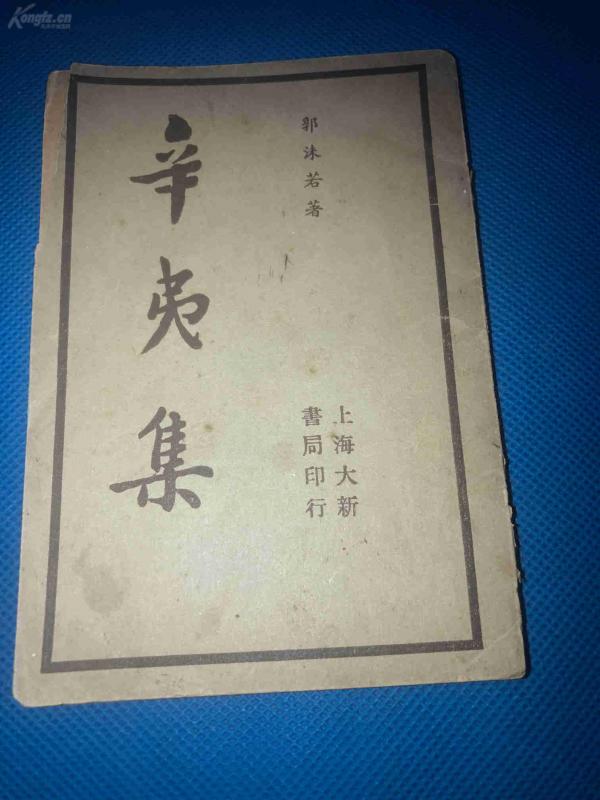 Kongfz.cn
郭沫若著
辛夷集
上海大新
書局印行